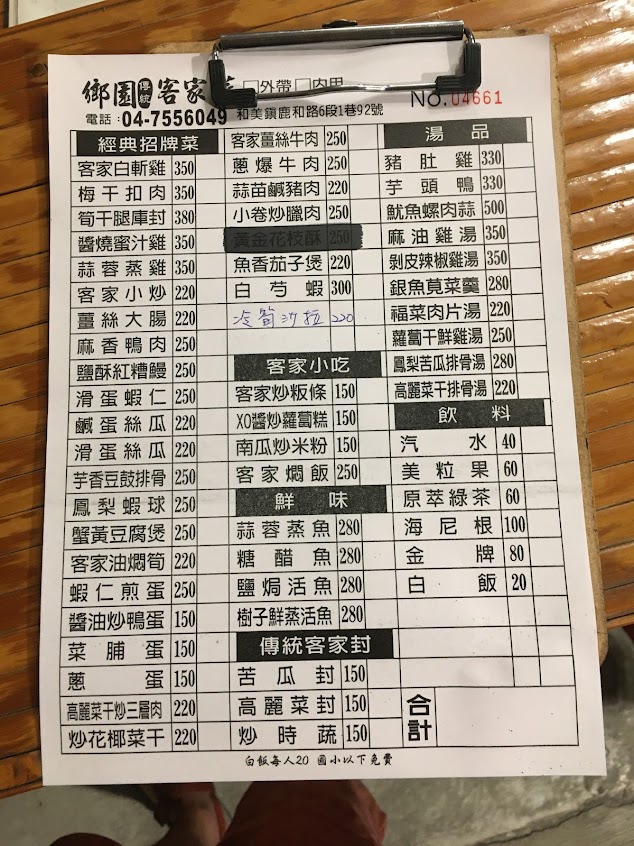 鄉園傳統客家菜 □外帶□内用
NO.04661
電話：04-7556049 和美鎮鹿和路6段1巷92號
經典招牌菜
客家白斬雞 350
梅干扣肉 350
筍干腿庫封 380
醬燒蜜汁雞 350
蒜蓉蒸雞 350
客家小炒 220
薑絲大腸 220
麻香鴨肉 250
鹽酥紅糟鰻 250
滑蛋蝦仁 250
鹹蛋絲瓜 220
滑蛋絲瓜 220
芋香豆鼓排骨 250
鳳梨蝦球 250
蟹黃豆腐煲 250
客家油燜筍 220
蝦仁煎蛋 250
醬油炒鴨蛋 150
菜脯蛋 150
蔥蛋 150
高麗菜干炒三層肉 220
炒花椰菜干 220
客家薑絲牛肉 250
蔥爆牛肉 250
蒜苗鹹豬肉 220
小卷炒臘肉 250
黃金花枝酥 250
魚香茄子煲 220
白芍蝦 300
冷筍沙拉 220
客家小吃
客家炒粄條 150
XO醬炒蘿蔔糕 150
南瓜炒米粉 150
客家燜飯 250
鮮味
蒜蓉蒸魚 280
糖醋魚 280
鹽焗活魚 280
樹子鮮蒸活魚 280
傳統客家封
苦瓜封 150
高麗菜封 150
炒時蔬 150
湯品
豬肚雞 330
芋頭鴨 330
魷魚螺肉蒜 500
麻油雞湯 350
剝皮辣椒雞湯 350
銀魚莧菜羹 280
福菜肉片湯 220
蘿蔔干鮮雞湯 250
鳳梨苦瓜排骨湯 280
高麗菜干排骨湯 220
飲料
汽水 40
美粒果 60
原萃綠茶 60
海尼根 100
金牌 80
白飯 20
合計
白飯每人20 國小以下免費